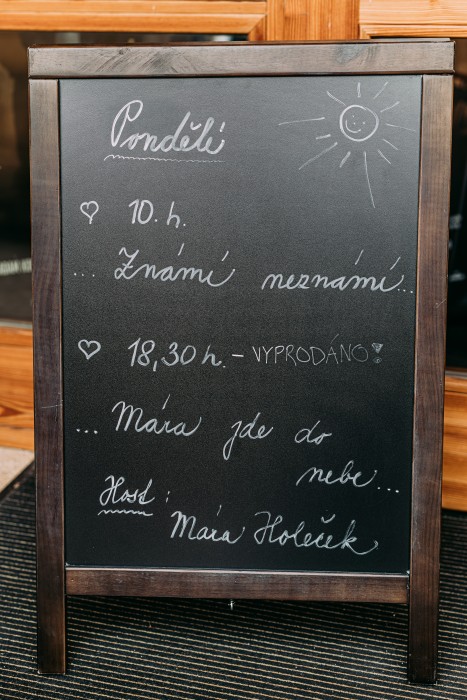 Pondělí
10. h.
... Známí neznámí...
18,30 h. - VYPRODÁNO!
... Mára jde do
nebe...
Host:
Mára Holeček